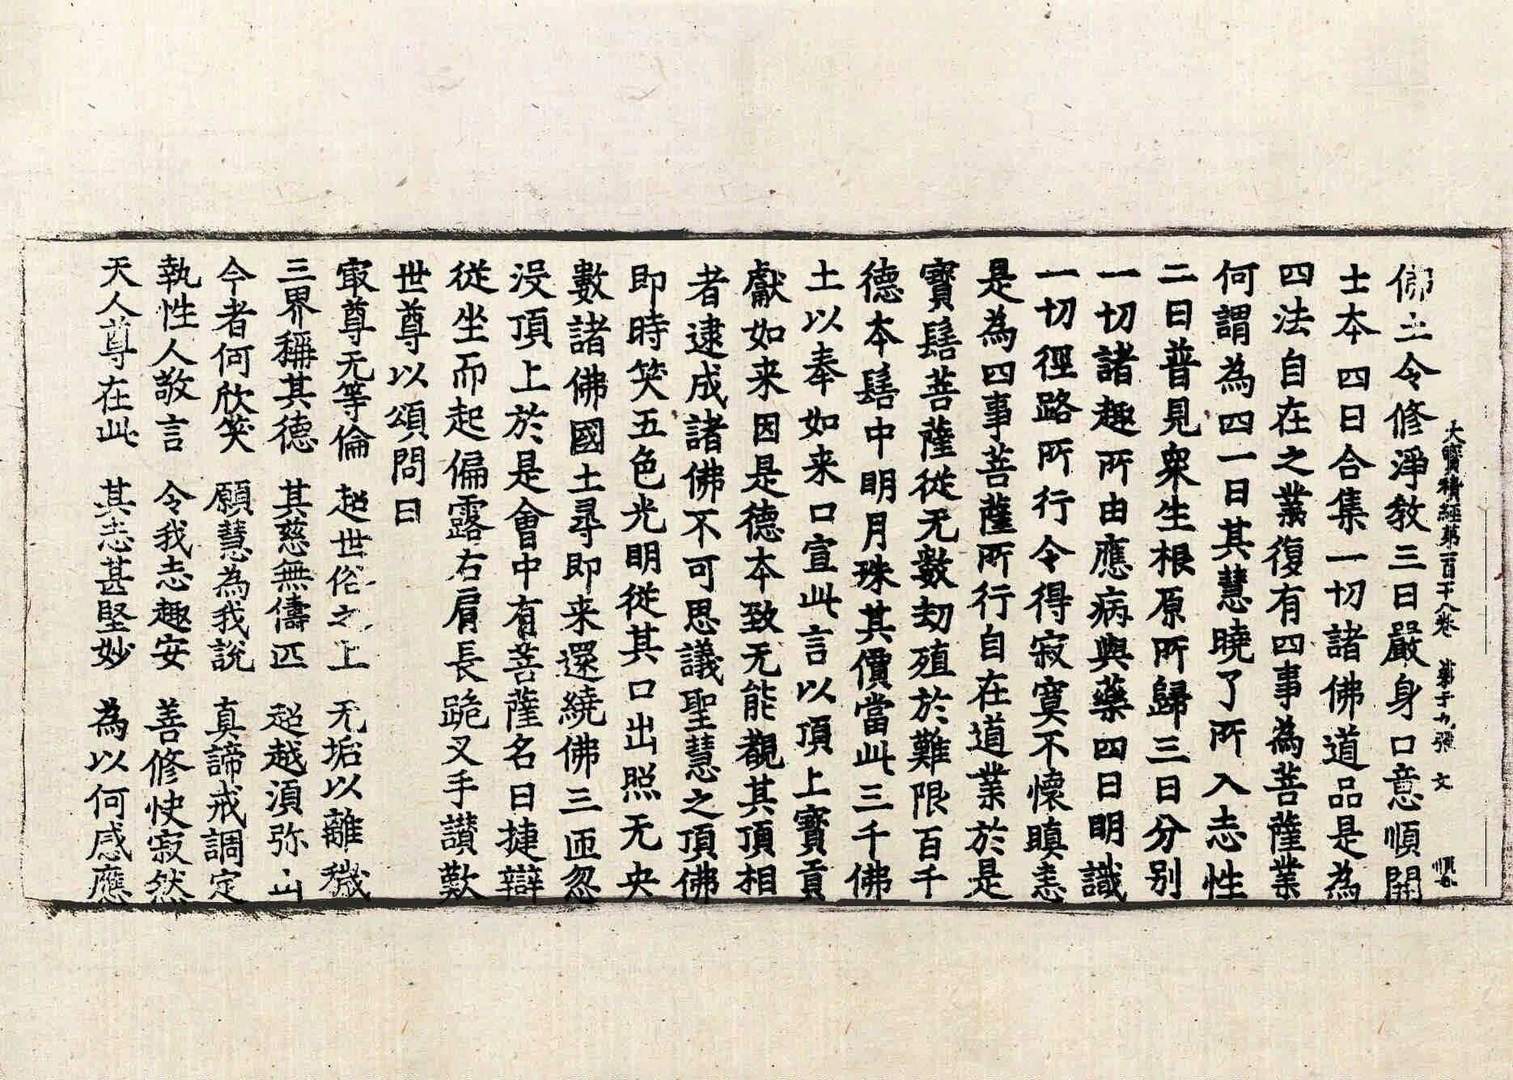 大寶積經第一百十八卷 第十九張 文
佛土令修淨教三曰嚴身口意順開
士本四曰合集一切諸佛道品是為
四法自在之業復有四事為菩薩業
何謂為四一曰其慧曉了所入志性
二曰普見衆生根原所歸三曰分別
一切諸趣所由應病與藥四曰明識
一切徑路所行令得寂寞不懷瞋恚
是為四事菩薩所行自在道業於是
寶髻菩薩從无數劫殖於難限百千
德本髻中明月珠其價當此三千佛
土以奉如来口宣此言以頂上寶貢
獻如来因是德本致无能觀其頂相
者逮成諸佛不可思議聖慧之頂佛
即時笑五色光明從其口出照无央
數諸佛國土尋即来還繞佛三匝忽
没頂上於是會中有菩薩名曰捷辯
從坐而起偏露右肩長跪叉手讃歎
世尊以頌問曰
㝡尊无等倫 超世俗之上 无垢以離穢
三界稱其德 其慈無儔匹 超越湏弥山
今者何欣笑 願慧為我說 真諦戒調定
執性人敬言 令我志趣安 善修快寂然
天人尊在此 其志甚堅妙 為以何感應